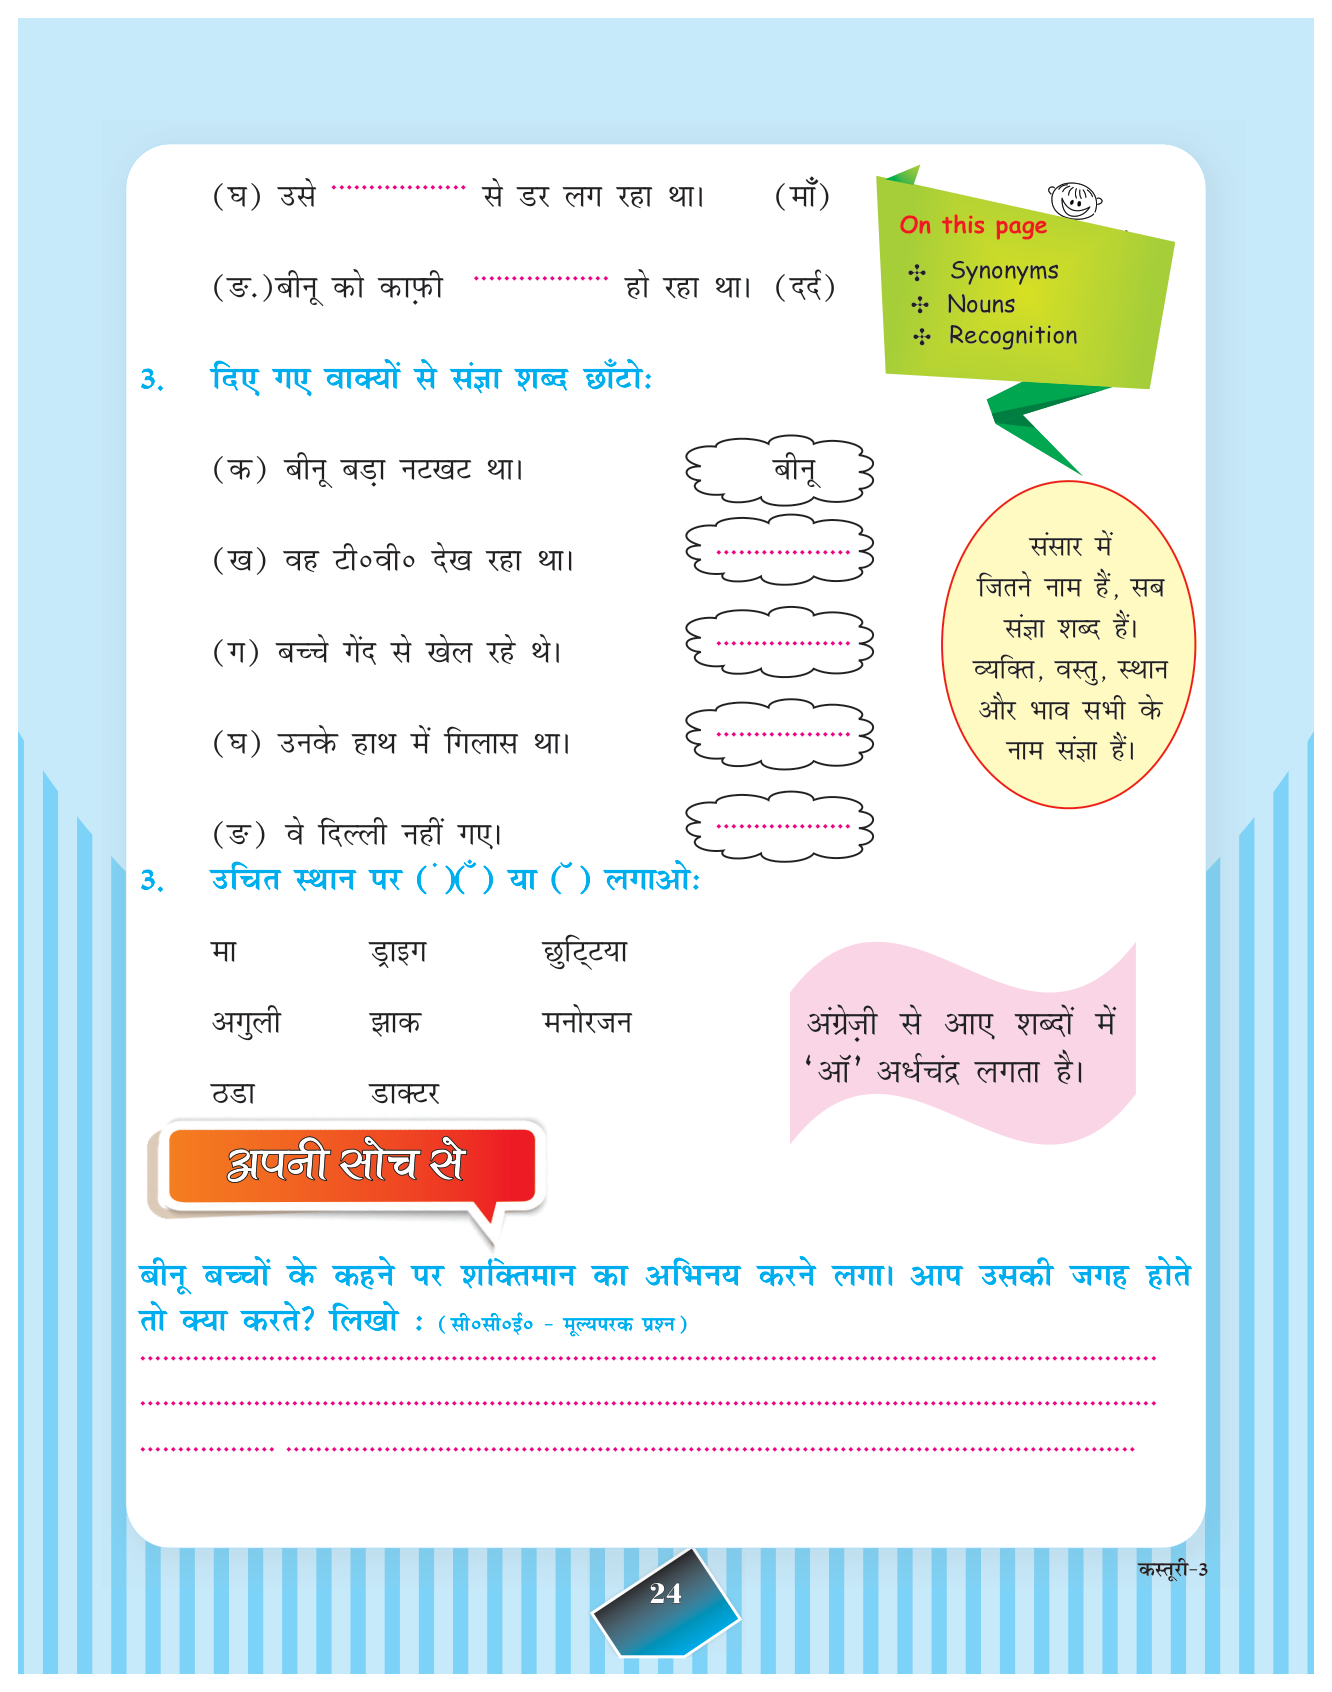 (घ) उसे .................. से डर लग रहा था। (माँ)
(ङ.)बीनू को काफ़ी .................. हो रहा था। (दर्द)
On this page
Synonyms
Nouns
Recognition
3. दिए गए वाक्यों से संज्ञा शब्द छाँटो:
(क) बीनू बड़ा नटखट था। बीनू
(ख) वह टी०वी० देख रहा था। ..................
(ग) बच्चे गेंद से खेल रहे थे। ..................
(घ) उनके हाथ में गिलास था। ..................
(ङ) वे दिल्ली नहीं गए। ..................
संसार में
जितने नाम हैं, सब
संज्ञा शब्द हैं।
व्यक्ति, वस्तु, स्थान
और भाव सभी के
नाम संज्ञा हैं।
3. उचित स्थान पर (ं)(ँ) या (ॅ) लगाओ:
मा ड्राइग छुट्टिया
अगुली झाक मनोरजन
ठडा डाक्टर
अंग्रेज़ी से आए शब्दों में
‘ऑ’ अर्धचंद्र लगता है।
अपनी सोच से
बीनू बच्चों के कहने पर शक्तिमान का अभिनय करने लगा। आप उसकी जगह होते
तो क्या करते? लिखो : (सी०सी०ई० - मूल्यपरक प्रश्न)
कस्तूरी-3
24